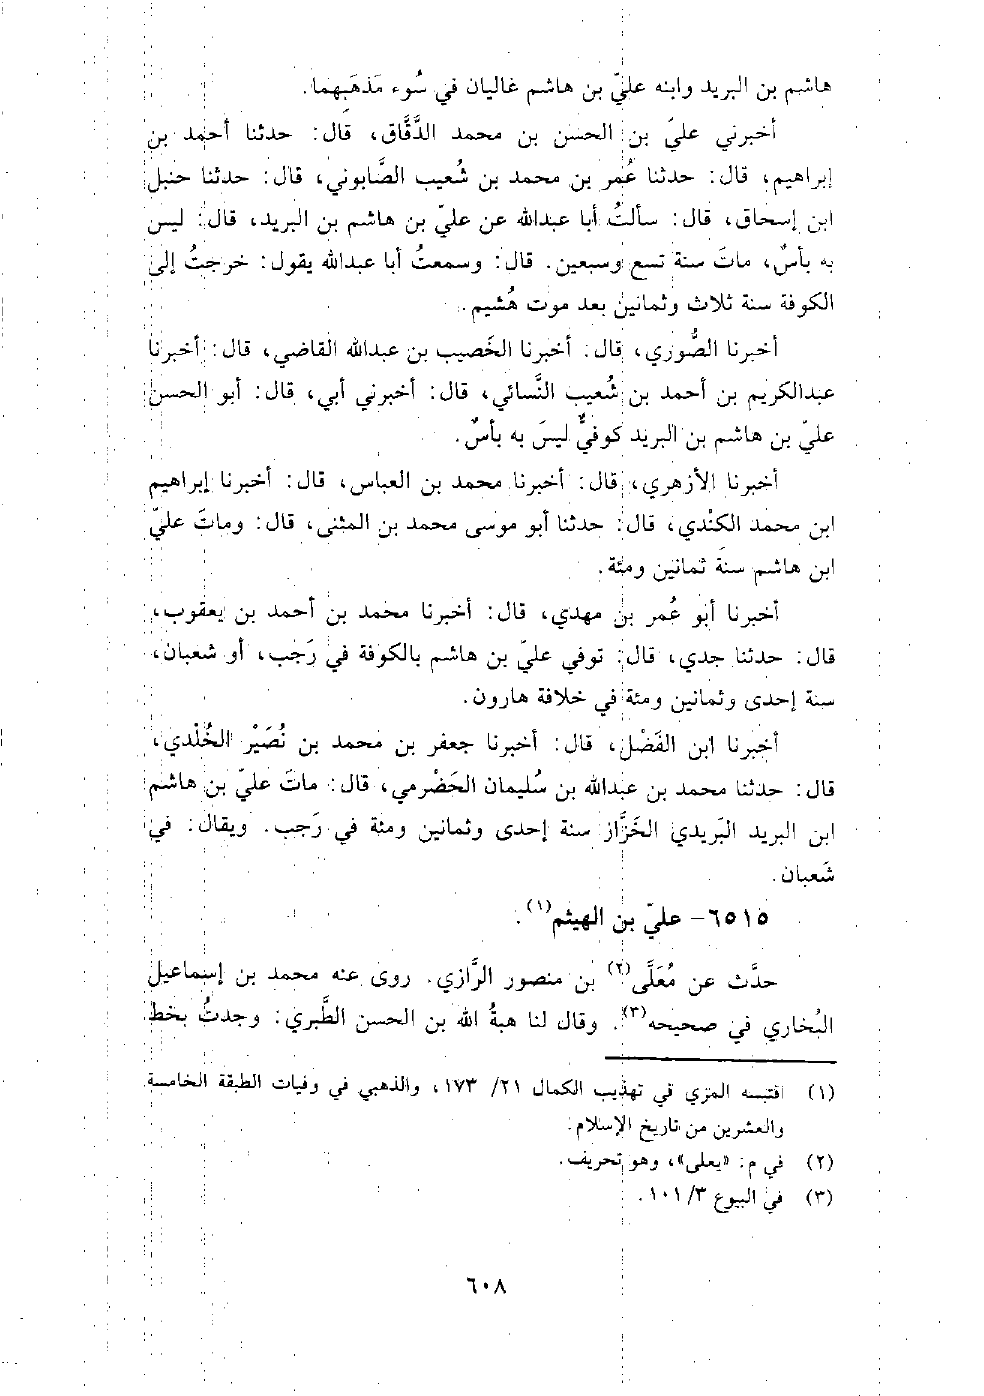 هاشم بن البريد وابنه عليّ بن هاشم غاليان في سُوء مَذهَبِهما.
أخبرني عليّ بن الحسن بن محمد الدَّقَّاق، قال: حدثنا أحمد بن
إبراهيم، قال: حدثنا عُمر بن محمد بن شُعيب الصَّابوني، قال: حدثنا حنبل
ابن إسحاق، قال: سألتُ أبا عبدالله عن عليّ بن هاشم بن البريد، قال: ليس
به بأسٌ، ماتَ سنة تسع وسبعين. قال: وسمعتُ أبا عبدالله يقول: خرجتُ إلى
الكوفة سنة ثلاث وثمانين بعد موت هُشيم.
أخبرنا الصُّوري، قال: أخبرنا الخَصيب بن عبدالله القاضي، قال: أخبرنا
عبدالكريم بن أحمد بن شُعيب النَّسائي، قال: أخبرني أبي، قال: أبو الحسن
عليّ بن هاشم بن البريد كوفيٌّ ليسَ به بأسٌ.
أخبرنا الأزهري، قال: أخبرنا محمد بن العباس، قال: أخبرنا إبراهيم
ابن محمد الكنْدي، قال: حدثنا أبو موسى محمد بن المثنى، قال: وماتَ عليّ
ابن هاشم سنةَ ثمانين ومئة.
أخبرنا أبو عُمر بن مهدي، قال: أخبرنا محمد بن أحمد بن يعقوب،
قال: حدثنا جدي، قال: توفي عليّ بن هاشم بالكوفة في رَجب، أو شعبان،
سنة إحدى وثمانين ومئة في خلافة هارون.
أخبرنا ابن الفَضْل، قال: أخبرنا جعفر بن محمد بن نُصَيْر الخُلْدي،
قال: حدثنا محمد بن عبدالله بن سُليمان الحَضْرمي، قال: ماتَ عليّ بن هاشم
ابن البريد البَريدي الخَزَّاز سنة إحدى وثمانين ومئة في رَجب. ويقال: في
شَعبان.
٦٥١٥- عليّ بن الهيثم(١).
حدَّث عن مُعَلَّى(٢) بن منصور الرَّازي. روى عنه محمد بن إسماعيل
البُخاري في صحيحه(٣). وقال لنا هبةُ الله بن الحسن الطَّبري: وجدتُ بخط
(١) اقتبسه المزي في تهذيب الكمال ٢١/ ١٧٣، والذهبي في وفيات الطبقة الخامسة
والعشرين من تاريخ الإسلام.
(٢) في م: «يعلى»، وهو تحريف.
(٣) في البيوع ٣/ ١٠١.
٦٠٨